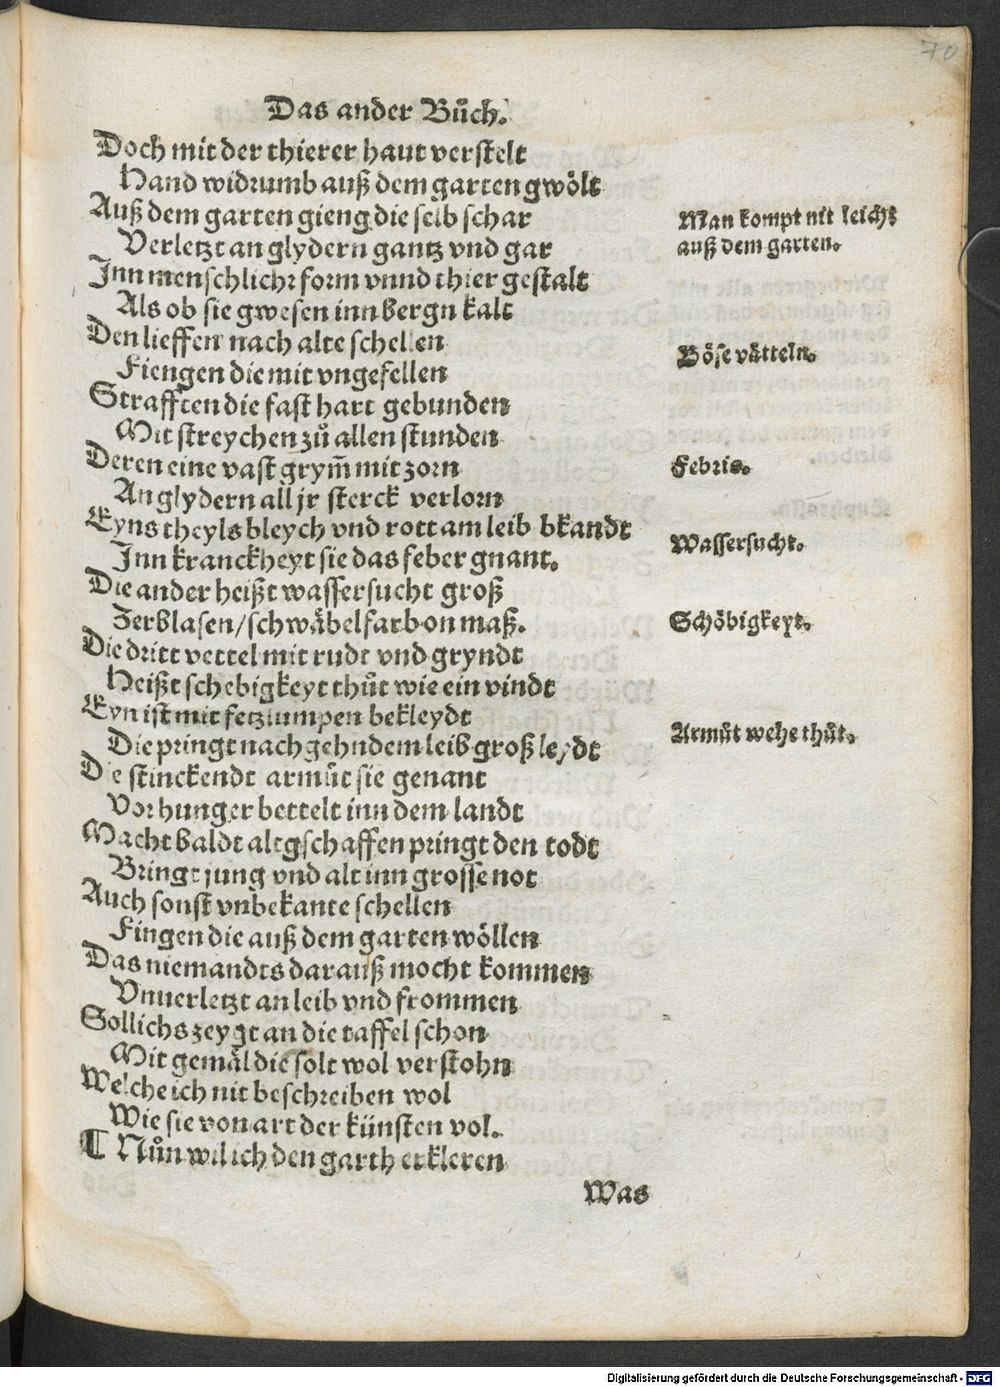 70
Das ander Bůch.
Doch mit der thierer haut verstelt
Hand widrumb auß dem garten gwölt
Auß dem garten gieng die selb schar
Verletzt an glydern gantz vnd gar
Inn menschlichr form vnnd thier gestalt
Als ob sie gwesen inn bergn kalt
Den lieffen nach alte schellen
Fiengen die mit vngefellen
Strafften die fast hart gebunden
Mit streychen zů allen stunden
Deren eine vast grym̄ mit zorn
An glydern all jr sterck verlorn
Eyns theyls bleych vnd rott am leib bkandt
Inn kranckheyt sie das feber gnant.
Die ander heißt wassersucht groß
Zerblasen/schwäbelfarb on maß.
Die dritt vettel mit rudt vnd gryndt
Heißt schebigkeyt thůt wie ein vindt
Eyn ist mit fetzlumpen bekleydt
Die pringt nachgehndem leib groß leydt
Die stinckendt armůt sie genant
Vor hunger bettelt inn dem landt
Macht baldt altgschaffen pringt den todt
Bringt jung vnd alt inn grosse not
Auch sonst vnbekante schellen
Fingen die auß dem garten wöllen
Das niemandts darauß mocht kommen
Vnuerletzt an leib vnd frommen
Sollichs zeygt an die taffel schon
Mit gemäl die solt wol verstohn
Welche ich nit beschreiben wol
Wie sie von art der künsten vol.
¶ Nůn wil ich den garth erkleren
Was
Man kompt nit leicht
auß dem garten.
Böse vätteln.
Febris.
Wassersucht.
Schöbigkeyt.
Armůt wehe thůt.
Digitalisierung gefördert durch die Deutsche Forschungsgemeinschaft - DFG